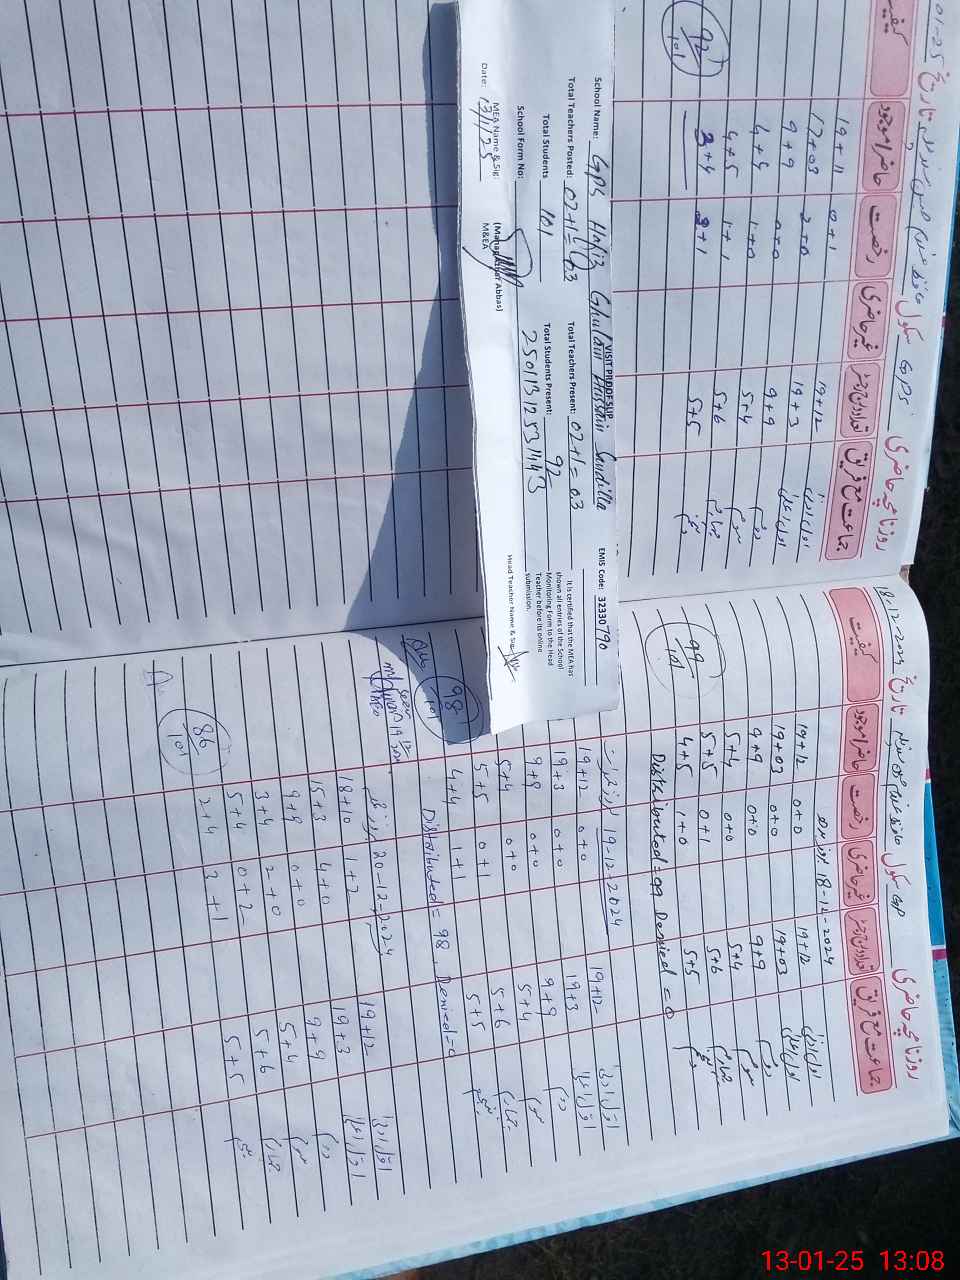 VISIT PROOF SLIP
School Name: GPS Hafiz Ghulam Hussain Gundilla EMIS Code: 32330790
Total Teachers Posted: 02+1=03 Total Teachers Present: 02+1=03
Total Students 101 Total Students Present: 92
School Form No: 250113125311443
It is certified that the MEA has
shown all entries of the School
Monitoring Form to the Head
Teacher before its online
submission.
MEA Name & Sig: Head Teacher Name & Sig:
Date: 13/1/25
M&EA
روزنامچہ حاضری سکول GPS تاریخ 01-25
جماعت مع فریق تعداد درج رجسٹر غیر حاضری رخصت حاضر/موجود کیفیت
19+12 0+1 19+11
19+3 2+0 17+03
9+9 0+0 9+9
سوم 5+4 1+0 4+4
چہارم 5+6 1+1 4+5
پنجم 5+5 2+1 3+4
92/101
روزنامچہ حاضری سکول GP تاریخ 18-12-2024
جماعت مع فریق تعداد درج رجسٹر غیر حاضری رخصت حاضر/موجود کیفیت
18-12-2024
19+12 0+0 19+12
19+03 0+0 19+03
دوم 9+9 0+0 9+9
سوم 5+4 0+0 5+4
چہارم 5+6 0+1 5+5
پنجم 5+5 1+0 4+5
99/101
Distributed = 99 Denied = 0
19-12-2024
19+12 0+0 19+12
19+3 0+0 19+3
دوم 9+9 0+0 9+9
سوم 5+4 0+0 5+4
چہارم 5+6 0+1 5+5
پنجم 5+5 1+1 4+4
98/101
Distributed = 98 Denied = 0
20-12-2024
19+12 1+2 18+10
19+3 4+0 15+3
دوم 9+9 0+0 9+9
سوم 5+4 2+0 3+4
چہارم 5+6 0+2 5+4
پنجم 5+5 3+1 2+4
86/101
13-01-25 13:08